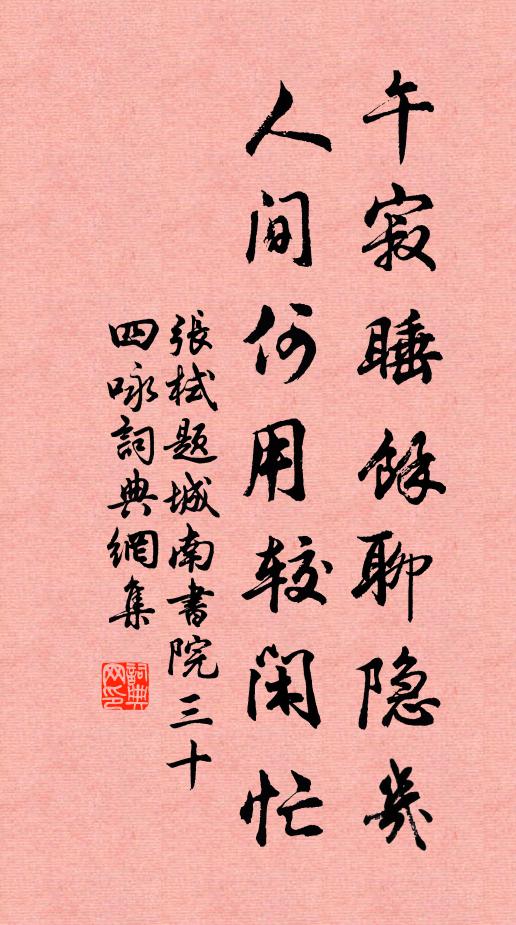 午寂睡餘聊隐幾
人间何用较闲忙
張栻题城南書院三十
四咏詞典網集
詞典网印